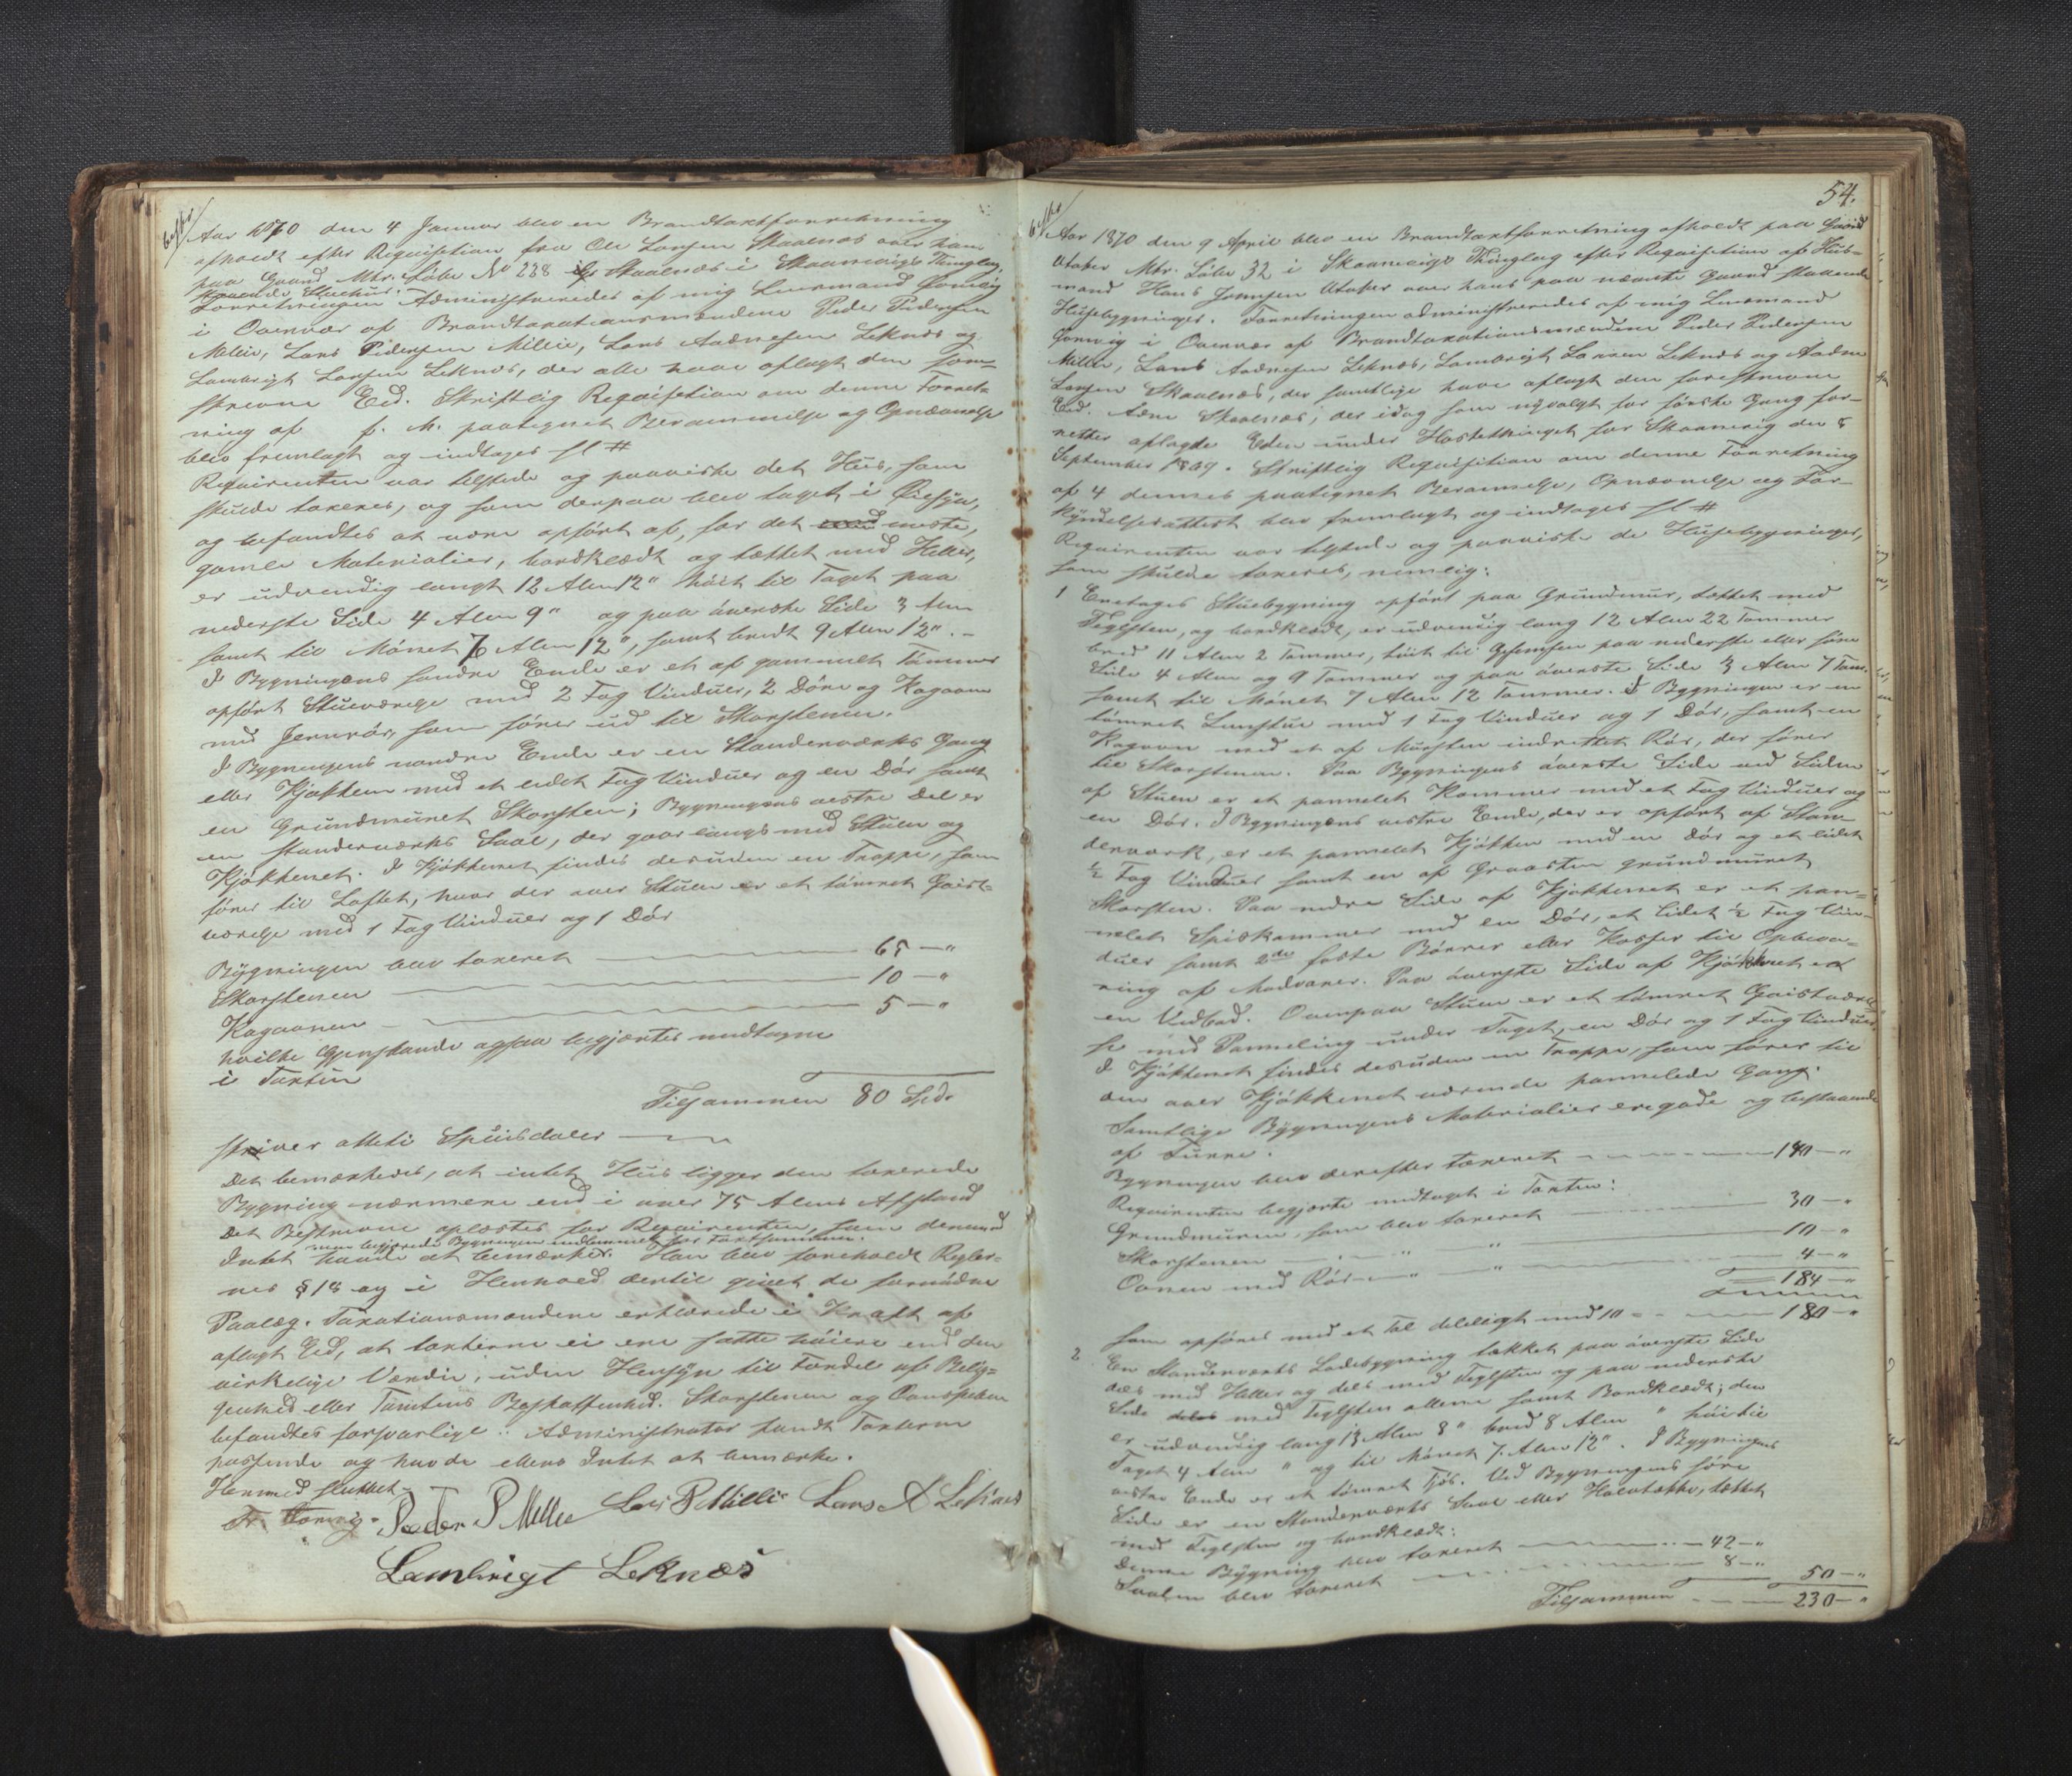 Aar 1870 den 4 Januar blev en Brandtaxtforretning
afholdt efter Requisition fra Ole Larsen Skaalnæs over hans
paa Gaard Mtr. Løbe No 238 Skaalnæs i Skaanevigs Thinglag
staaende Stuehus.
Forretningen Administreredes af mig Lensmand
i Overvær af Brandtaxationsmændene Peder Pedersen
Milie, Lars Pedersen Milie, Lars Aadnesen Leknæs og
Lambrigt Larsen Leknæs, der alle have aflagt den fore-
skrevne Eed. Skriftlig Requisition om denne Forret-
ning af f. M. paategnet Berammelse og Opnævnelse
blev fremlagt og indtages sl #
Requirenten var tilstede og paaviste det Huus, som
skulde taxeres, og som derpaa blev taget i Øiesyn,
og befandtes at være opført af, for det meste,
gamle Materialier, bordklædt og tækket med Heller,
er udvendig langt 12 Alen 12" høit til Taget paa
nederste Side 4 Alen 9" og paa øverste Side 3 Alen
samt til Mønet 7 Alen 12", samt bredt 9 Alen 12". -
I Bygningens søndre Ende er et af gammelt Tømmer
opført Stueværelse med 2 Fag Vinduer, 2 Døre og Kogeovn
med Jernrør, som fører ud til Skorstenen.
I Bygningens nordre Ende er en Standerværks Gang
eller Kjøkken med et lidet Fag Vinduer og en Dør samt
en Grundmuret Skorsten; Bygningens vestre Del er
en standerværks Sval, der gaar langs med Stuen og
Kjøkkenet. I Kjøkkenet findes desuden en Trappe, som
fører til Loftet, hvor der over Stuen er et tømret Gaist-
værelse med 1 Fag Vinduer og 1 Dør
Bygningen blev taxeret 65 – "
Skorstenen 10 – "
Kogeovnen 5 – "
hvilke Gjenstande ogsaa begjærtes medtagne
i Taxten
Tilsammen 80 Spd.
skriver otteti Speciedaler
Det bemærkedes, at intet Huus ligger den taxerede
Bygning nærmere end i over 75 Alens Afstand
Det Beskrevne oplæstes for Requirenten, som dermed
men begjærede Bygningen indlemmet for Taxtsummen.
Intet havde at bemærke. Han blev foreholdt Regler-
nes § 18 og i Henhold dertil givet de fornødne
Paalæg. Taxationsmændene erklærede i Kraft af
aflagt Eed, at taxterne ei ere satte høiere end den
virkelige Værdie, uden Hensyn til Fordel af Belig-
genhed eller Tomtens Beskaffenhed. Skorstenen og Ovnspiben
befandtes forsvarlige. Administrator fandt Taxterne
passende og havde ellers Intet at bemærke.
Hermed sluttet
Peder P Milie Lars P Milie Lars A Leknæs
Lambrigt Leknæs
54.
Aar 1870 den 9 April blev en Brandtaxtforretning afholdt paa Gaard
Utaker Mtr. Løbe 32 i Skaanevigs Thinglag efter Requisition af Huus-
mand Hans Utaker over hans paa nævnte Gaard staaende
Husebygninger. Forretningen administreredes af mig Lensmand
i Overvær af Brandtaxationsmændene Peder Pedersen
Milie, Lars Aadnesen Leknæs, Lambrigt Larsen Leknæs og Aadne
Larsen Skaalnæs, der samtlige have aflagt den foreskrevne
Eed. Adne Skaalnæs, der idag som nyvalgt for første Gang for-
retter aflagde Eden under Høstethinget for Skaanevig den 8
September 1869. Skriftlig Requisition om denne Forretning
af 4 dennes paategnet Berammelse, Opnævnelse og For-
kyndelsesattest blev fremlagt og indtages sl #
Requirenten var tilstede og paaviste de Husebygninger,
som skulde taxeres, nemlig:
1 Enetages Stuebygning opført paa Grundmur, tækket med
Teglsten, og bordklædt, er udvendig lang 12 Alen 22 Tommer
bred 11 Alen 2 Tommer, høit til Gesimsen paa nederste eller søre
Side 4 Alen og 9 Tommer og paa øverste Side 3 Alen 7 Tom.
samt til Mønet 7 Alen 12 Tommer. I Bygningen er en
tømret Lemstue med 1 Fag Vinduer og 1 Dør, samt en
Kogeovn med et af Mursten indrettet Rør, der fører
til Skorstenen. Paa Bygningens øverste Side ved Siden
af Stuen er et pannelet Kammer med et Fag Vinduer og
en Dør. I Bygningens vestre Ende, der er opført af Stan-
derværk, er et pannelet Kjøkken med en Dør og et lidet
½ Fag Vinduer samt en af Graasten grundmuret
Skorsten. Paa nedre Side af Kjøkkenet er et pan-
nelet Spiskammer med en Dør, et lidet ½ Fag Vin-
duer samt 2de faste til Opbeva-
ring af Madvarer. Paa øverste Side af Kjøkkenet er
en Vedbod. Ovenpaa Stuen er et tømret Gaistværel-
se med Panneling under Taget, en Dør og 1 Fag Vinduer.
I Kjøkkenet findes desuden en Trappe, som fører til
den over Kjøkkenet værende pannelede Gang.
Samtlige Bygningens Materialier ere gode og bestaaende
af Furre.
Bygningen blev derefter taxeret 140 – "
Requirenten begjærte medtaget i Taxten:
Grundmuren, som blev taxeret 30 – "
Skorstenen " " 10 – "
Ovnen med Rør " " 4 – "
184 – "
som opføres med et Tal deleligt med 10 180 – "
2 En Standerværks Ladebygning tækket paa øverste Side
dels med Heller og dels med Teglsten og paa nederste
Side med Teglsten allene samt Bordklædt; den
er udvendig lang 13 Alen 8" bred 8 Alen " høi til
Taget 4 Alen " og til Mønet 7 Alen 12". I Bygningens
vestre Ende er et tømret Fjøs. Ved Bygningens søre
Side er en Standerværks Sval eller Halvtække, tækket
med Teglsten og bordklædt:
Denne Bygning blev taxeret 42 – "
Svalen blev taxeret 8 – " 50 – "
Tilsammen 230 – "